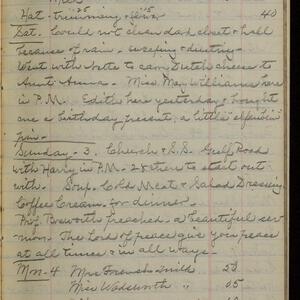 Hat - trimming + flowers 40
Sat. Could not clean dark closet & hall
because of rain - sweeping & dusting -
Went with Nette to carry Dutch cheese to
Aunt Anna - Miss May Williams here
in P.M. Edith here yesterday & brought
me a birthday present, a little
pin -
Sunday - 3. Church & S.S. Gulf Road
with Harry in P.M. - 28 there to start out
with. Soup, Cold Meat & Salad Dressing
Coffee Cream for dinner.
Prof. Bosworth preached a beautiful ser-
mon. The Lord of peace give you peace
at all times & in all ways -
Mon - 4 Mrs 50
Miss Wadsworth " 05